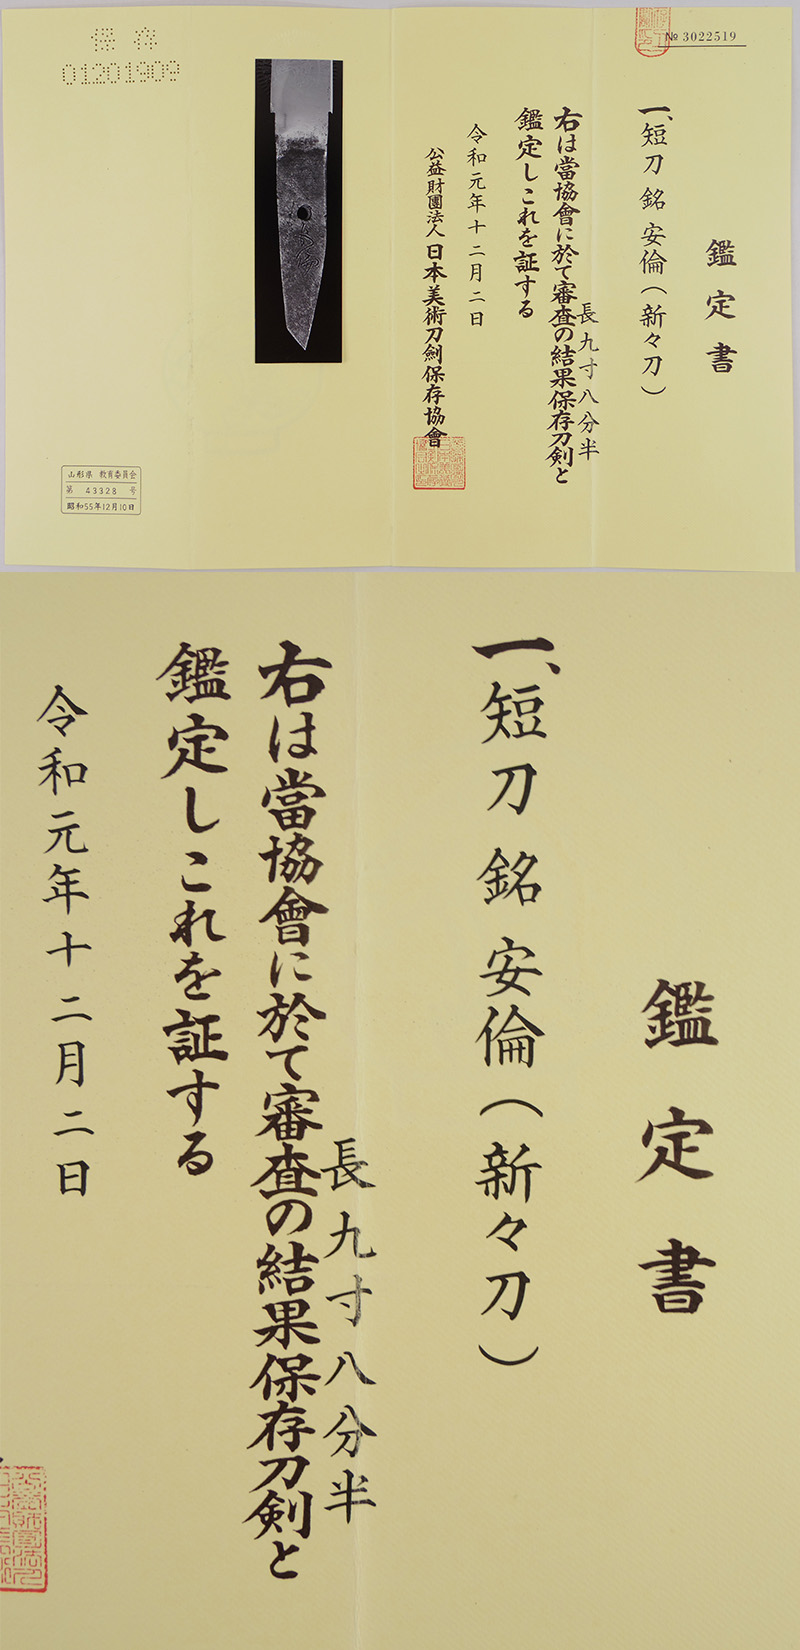 № 3022519
鑑定書
一、短刀 銘 安倫(新々刀)
長九寸八分半
右は當協會に於て審査の結果保存刀剣と
鑑定しこれを証する
令和元年十二月二日
公益財團法人日本美術刀劍保存協會
保存
01201909
山形県 教育委員会
第 43328 号
昭和55年12月10日
鑑定書
一、短刀 銘 安倫(新々刀)
長九寸八分半
右は當協會に於て審査の結果保存刀剣と
鑑定しこれを証する
令和元年十二月二日